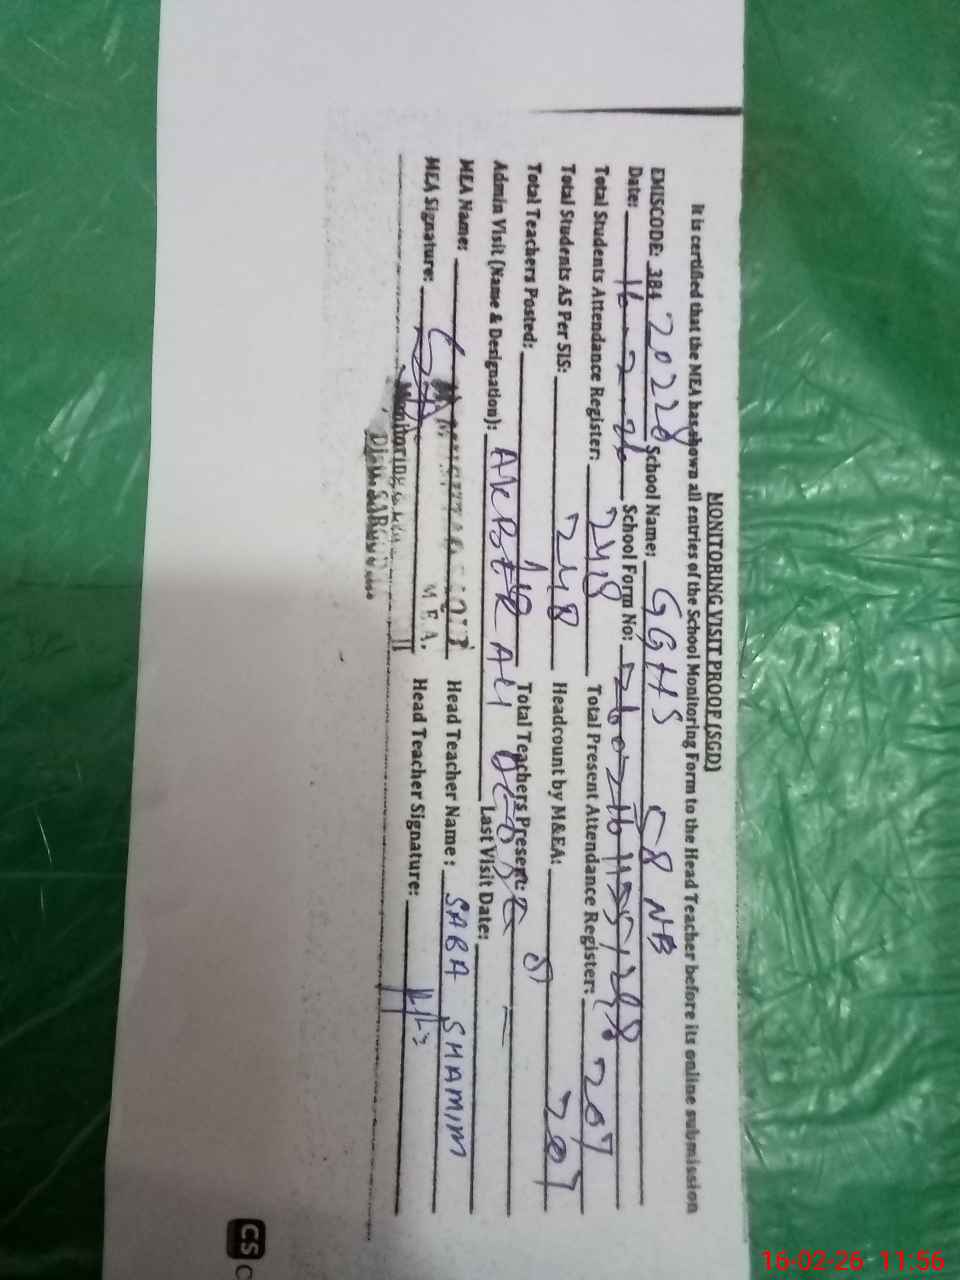 MONITORING VISIT PROOF (SGD)
It is certified that the MEA has shown all entries of the School Monitoring Form to the Head Teacher before its online submission
EMISCODE: 384 20228 School Name: GGHS 58 NB
Date: 16-2-26 School Form No:
Total Students Attendance Register: 248 Total Present Attendance Register: 207
Total Students AS Per SIS: 248 Headcount by M&EA: 207
Total Teachers Posted: Total Teachers Present:
Admin Visit (Name & Designation): AKBER ALI Last Visit Date:
MEA Name: Head Teacher Name: SABA SHAMIM
MEA Signature: M.E.A. Head Teacher Signature:
Monitoring
CS
16-02-26 11:56